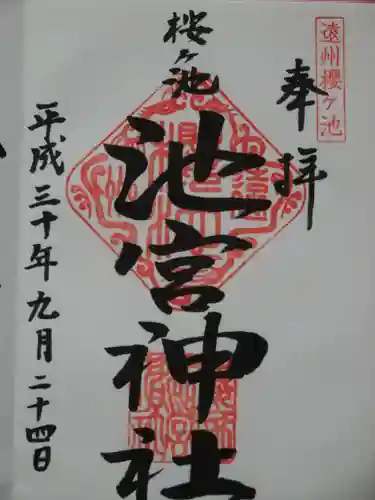 遠州櫻ヶ池
奉拝
桜ヶ池
池宮神社
平成三十年九月二十四日